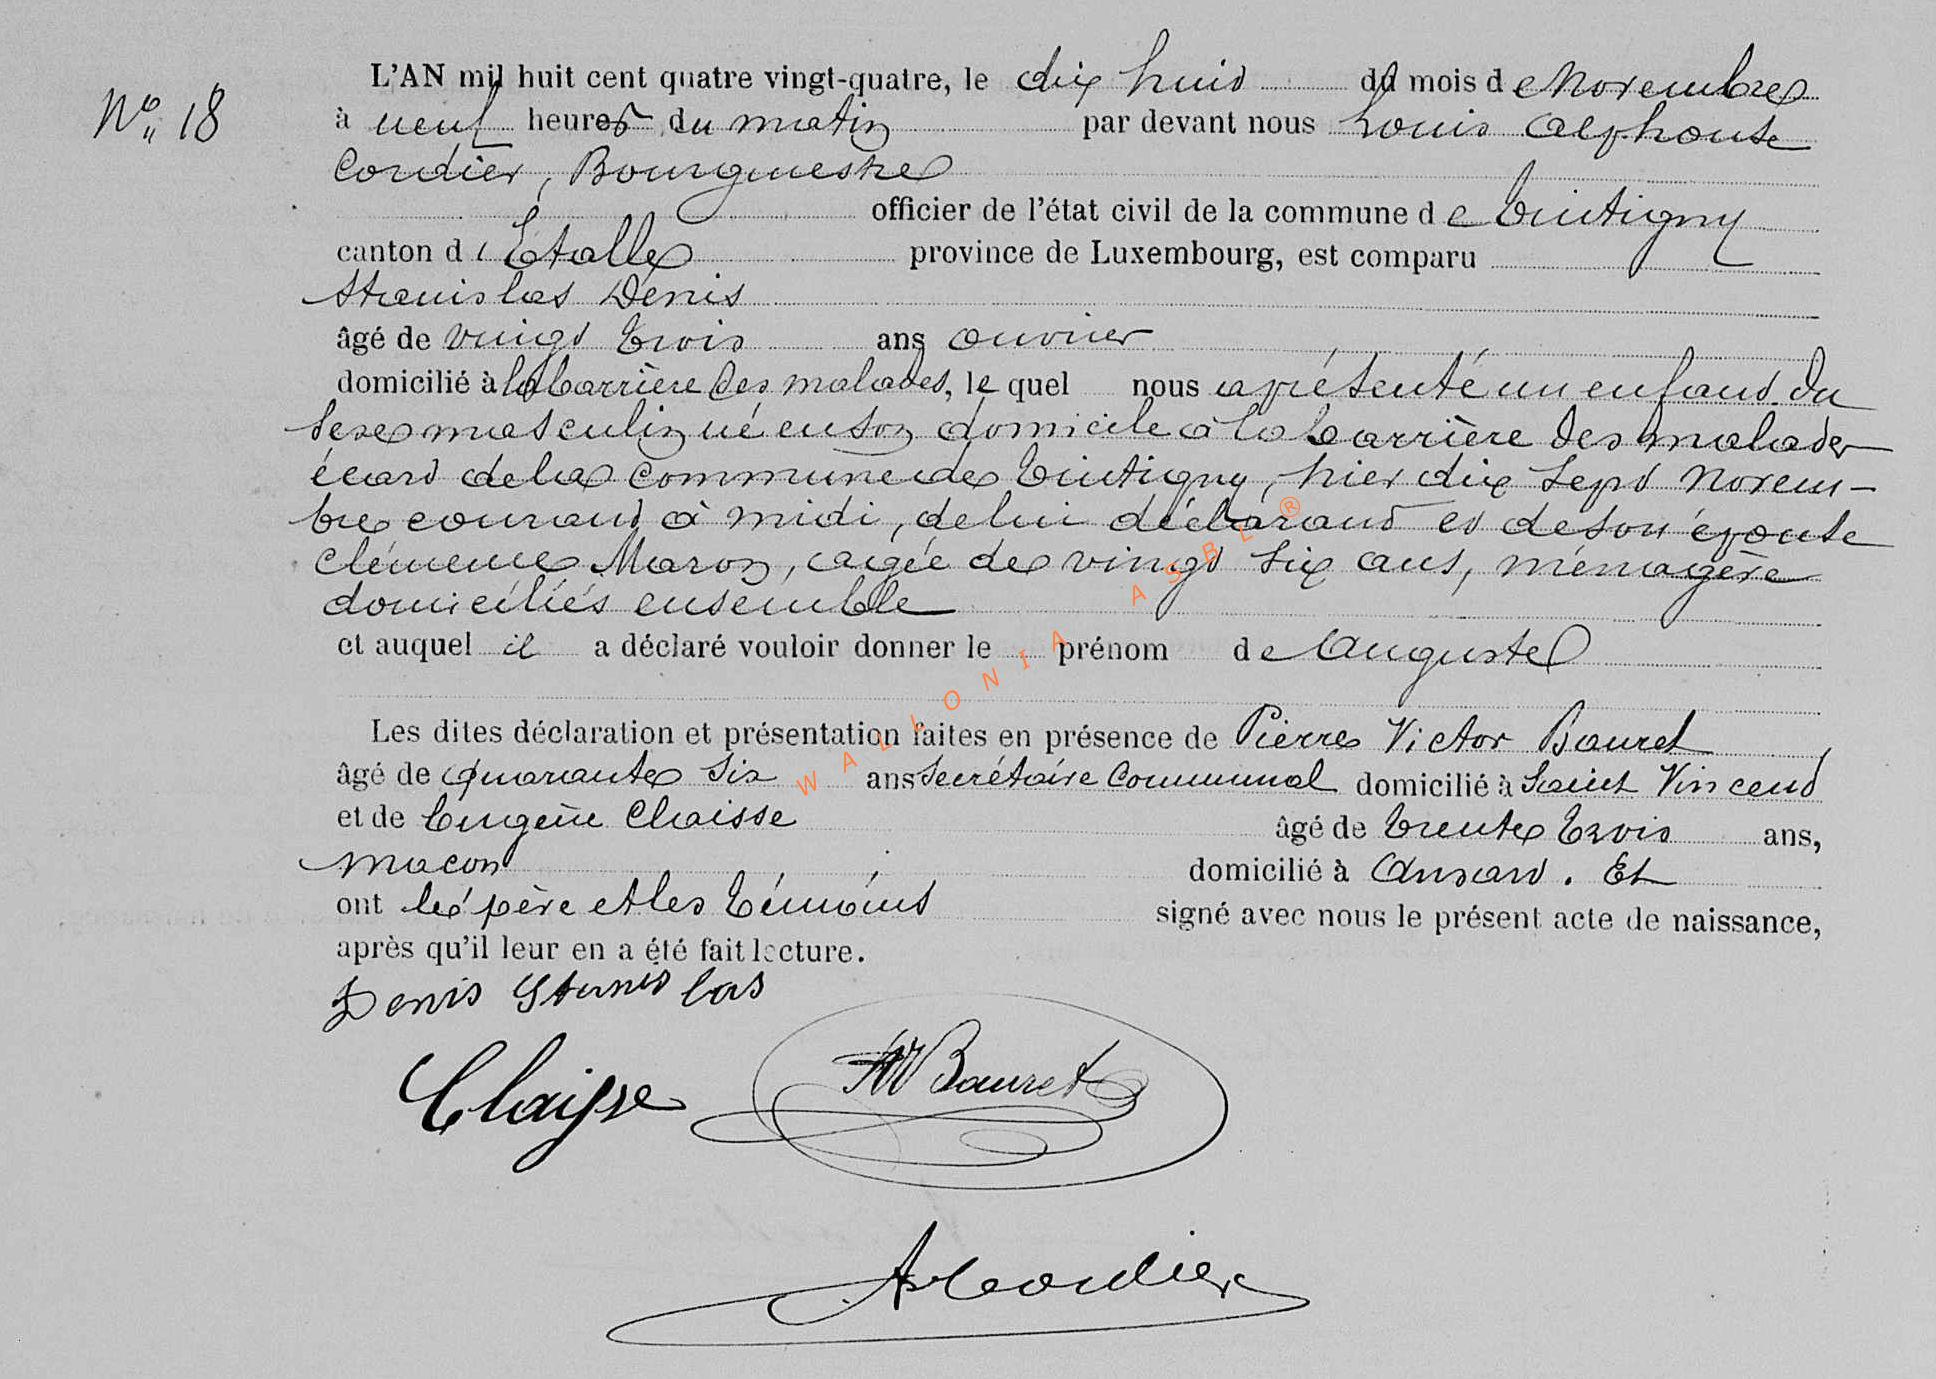 N° 18
L'AN mil huit cent quatre vingt-quatre, le dix huit du mois de Novembre
à neuf heures du matin par devant nous Louis Alphonse
Cordier, Bourgmestre
officier de l'état civil de la commune de Tintigny
canton d'Etalle province de Luxembourg, est comparu
Stanislas Denis
âgé de vingt trois ans ouvrier
domicilié à la barrière des malades, le quel nous a présenté un enfant du
sexe masculin né en son domicile à la barrière des malades
écart de la commune de Tintigny, hier dix sept Novem-
bre courant à midi, de lui déclarant et de son épouse
Clémence Maron, agée de vingt six ans, ménagère
domiciliés ensemble
et auquel il a déclaré vouloir donner le prénom de Auguste
Les dites déclaration et présentation faites en présence de Pierre Victor Bauret
âgé de quarante six ans Secrétaire Communal domicilié à Saint Vincent
et de Eugène Claisse âgé de trente trois ans,
maçon domicilié à Ansart. Et
ont les père et les témoins signé avec nous le présent acte de naissance,
après qu'il leur en a été fait lecture.
Denis Stanislas
Claisse Bauret
A Cordier
WALLONIA ASBL ®